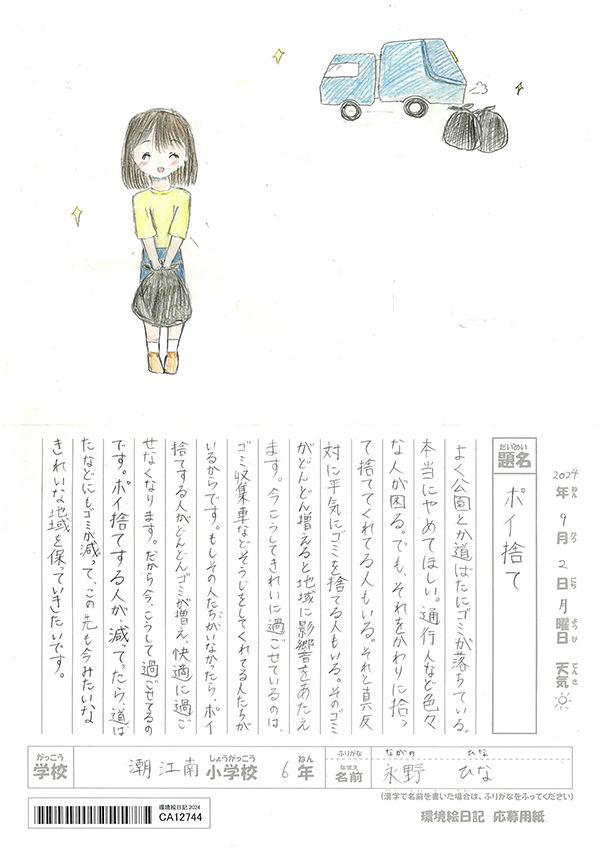 2024年9月2日月曜日 天気
ねん
がつ
にち
ようび
てんき
だいめい
題名
ポイ捨て
よく公園とか道ばたにゴミが落ちている。
本当にやめてほしい。通行人など色々
な人が困る。でも、それをかわりに拾っ
て捨ててくれてる人もいる。それと真反
対に平気にゴミを捨てる人もいる。そのゴミ
がどんどん増えると地域に影響をあたえ
ます。今こうしてきれいに過ごせているのは、
ゴミ収集車などそうじをしてくれてる人たちが
いるからです。もしその人たちがいなかったら、ポイ
捨てする人がどんどんゴミが増え、快適に過ご
せなくなります。だから今、こうして過ごせてるの
です。ポイ捨てする人が、減ってったら、道ば
たなどにもゴミが減って、この先も今みたいな
きれいな地域を保っていきたいです。
がっこう
学校
潮江南
しょうがっこう
小学校
6
ねん
年
ふりがな
ながの ひな
なまえ
名前
永野 ひな
(漢字で名前を書いた場合は、ふりがなをふってください)
環境絵日記 2024
CA12744
環境絵日記 応募用紙